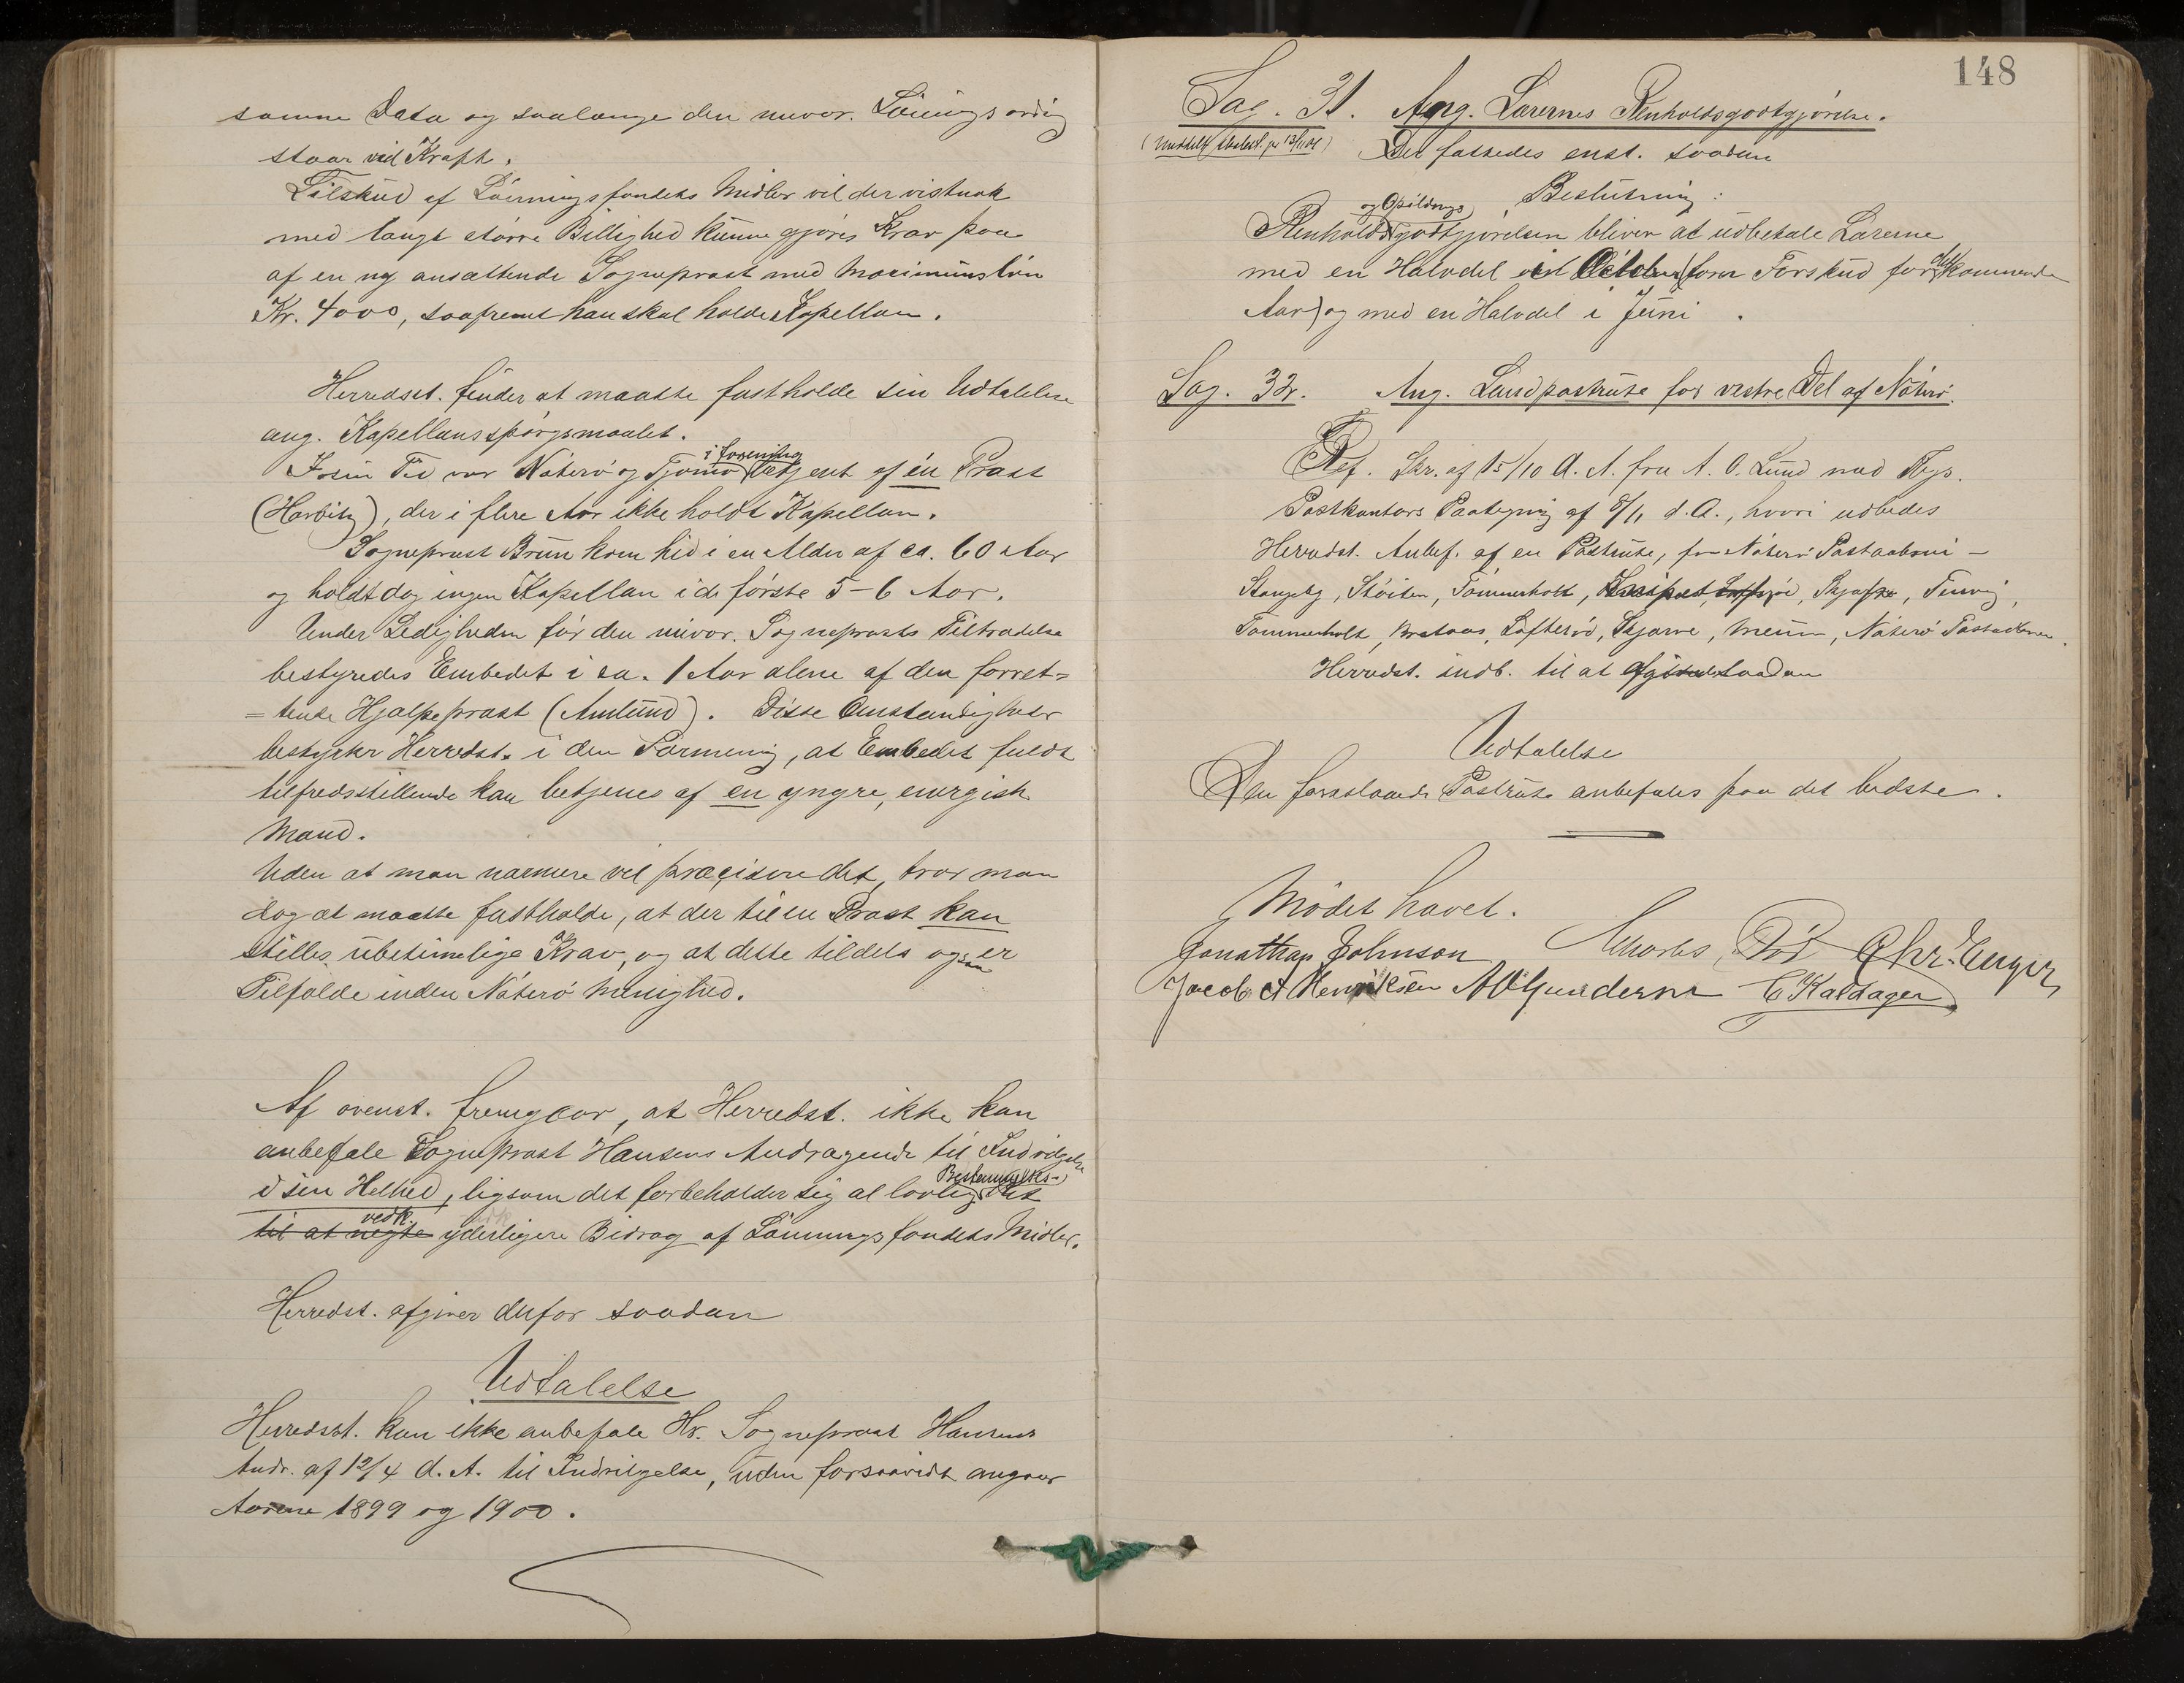 samme Data og saalænge den nuvær. Lönings ordng
staar ved Kraft.
Tilskud af Lönningsfondets Midler vil der vistnok
med langt större Billighed kunne gjöres Krav paa
af en ny ansættende Sognepræst med Maximumslön
Kr. 4000, saafremt han skal holde Kapellan.
Herredsst. finder at maatte fastholde sin Udtalelse
ang. Kapellansspörgsmaalet.
I sin Tid var Nöterö og Tjömö i forening betjent af én Præst
(Harbitz), der i flere Aar ikke holdt Kapellan.
Sogneprest Brun kom hid i en Alder af ca. 60 Aar
og holdt dog ingen Kapellan i de förste 5-6 Aar.
Under Ledigheden för den nuvær. Sogneprests Tiltrædelse
bestyredes Embedet i ca. 1 Aar alene af den forret=
=tende Hjælpepræst (Amlund). Disse Omstændigheder
bestyrker Herredst. i den Formening, at Embedet fuldt
tilfredsstillende kan betjenes af en yngre, energisk
Mand.
Uden at man nærmere vil præcisere det, tror man
dog at maatte fastholde, at der til en Præst kan
stilles ubetimelige Krav, og at dette tildels ogsaa er
Tilfælde inden Nöterö Menighed.
Af ovenst. fremgaar, at Herredst. ikke kan
anbefale Sogneprest Hansens Andragende til Indvilgelse
i sin Helhed, ligsom det forbeholder sig al lovlig Bestemmelses- Ret
til at negte vedk. yderligere Bidrag af Lönningsfondets Midler.
Herredst. afgiver derfor saadan
Udtalelse
Herredsst. kan ikke anbefale Hr. Sogneprest Hansens
Andr. af 12/4 d. A. til Indvilgelse, uden forsaavidt angaar
Aarene 1899 og 1900.
148
Sag. 31. Ang. Lærernes Renholdsgodtgjörelse.
(Meddelt Skolest. pr 13/11 01) Det fattedes enst. saadan
Beslutning:
Renholds og Opildnings godtgjörelsen bliver at udbetale Lærerne
med en Halvdel ved (som Forskud for det kommende
Aar) og med en Halvdel i Juni.
Sag. 32. Ang. Landpostrute for vestre Del af Nöterö.
Ref. Skr. af 15/10 d. A. fra A. O. Lund med Tbgs.
Postkontors Paategning af 8/11 d. A., hvori udbedes
Herredst. Anbef. af en Postrute, fra Nöterö Postaabneri -
Stangeby, Stöiten, Tömmerholt, Skjærve, Tenvig,
Tömmerholt, Brataas, Lofteröd, Skjærve, Meum, Nöterö Postaabneri.
Herredst. indb. til at afgive saadan
Udtalelse
Den foreslaaede Postrute anbefales paa det bedste.
Mödet hævet.
Jonathan Johnson Chr. Enger
Jacob A Henriksen A O Gundersen C Kaldager